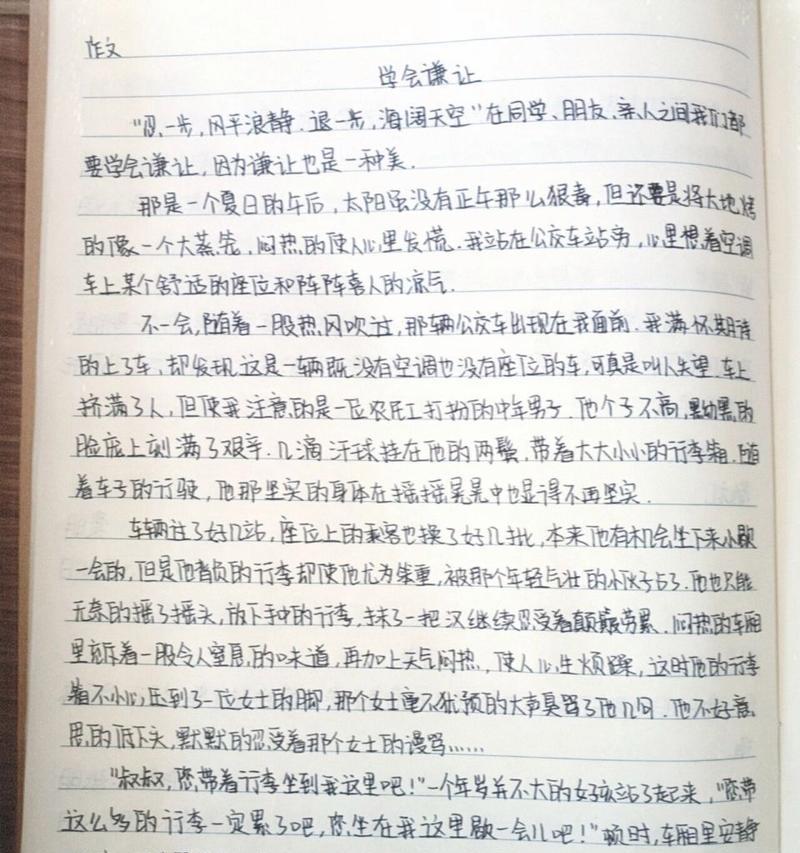 作文
学会谦让
"忍一步，风平浪静．退一步，海阔天空"在同学、朋友、亲人之间我们都
要学会谦让，因为谦让也是一种美．
那是一个夏日的午后，太阳虽没有正午那么狠毒，但还要是将大地烤
的像一个大蒸笼，闷热的使人心里发慌．我站在公交车站旁，心里想着空调
车上某个舒适的座位和阵阵喜人的凉气．
不一会，随着一股热风吹过，那辆公交车出现在我面前．我满怀期待
的上了车，却发现这是一辆既没有空调也没有座位的车，可真是叫人失望．车上
挤满了人，但使我注意的是一位农民工打扮的中年男子．他个子不高，黝黑的
脸庞上刻满了艰辛．几滴汗球挂在他的两鬓，带着大大小小的行李箱．随
着车子的行驶，他那坚实的身体在摇摇晃晃中也显得不再坚实．
车辆过了好几站，座位上的乘客也换了好几批，本来他有机会坐下来小歇
一会的，但是他背负的行李却使他尤为笨重，被那个年轻气壮的小伙子占了．他也只能
无奈的摇了摇头，放下手中的行李，抹了一把汉继续忍受着颠簸劳累．闷热的车厢
里充斥着一股令人窒息的味道，再加上天气闷热，使人心生烦躁，这时他的行李
箱不小心压到了一位女士的脚，那个女士毫不犹预的大声臭骂了他几句．他不好意
思的低下头，默默的忍受着那个女士的谩骂……
"叔叔，您带着行李坐到我这里吧！"一个年岁并不大的女孩站了起来，"您带
这么多的行李一定累了吧，您坐在我这里歇一会儿吧！"顿时，车厢里安静